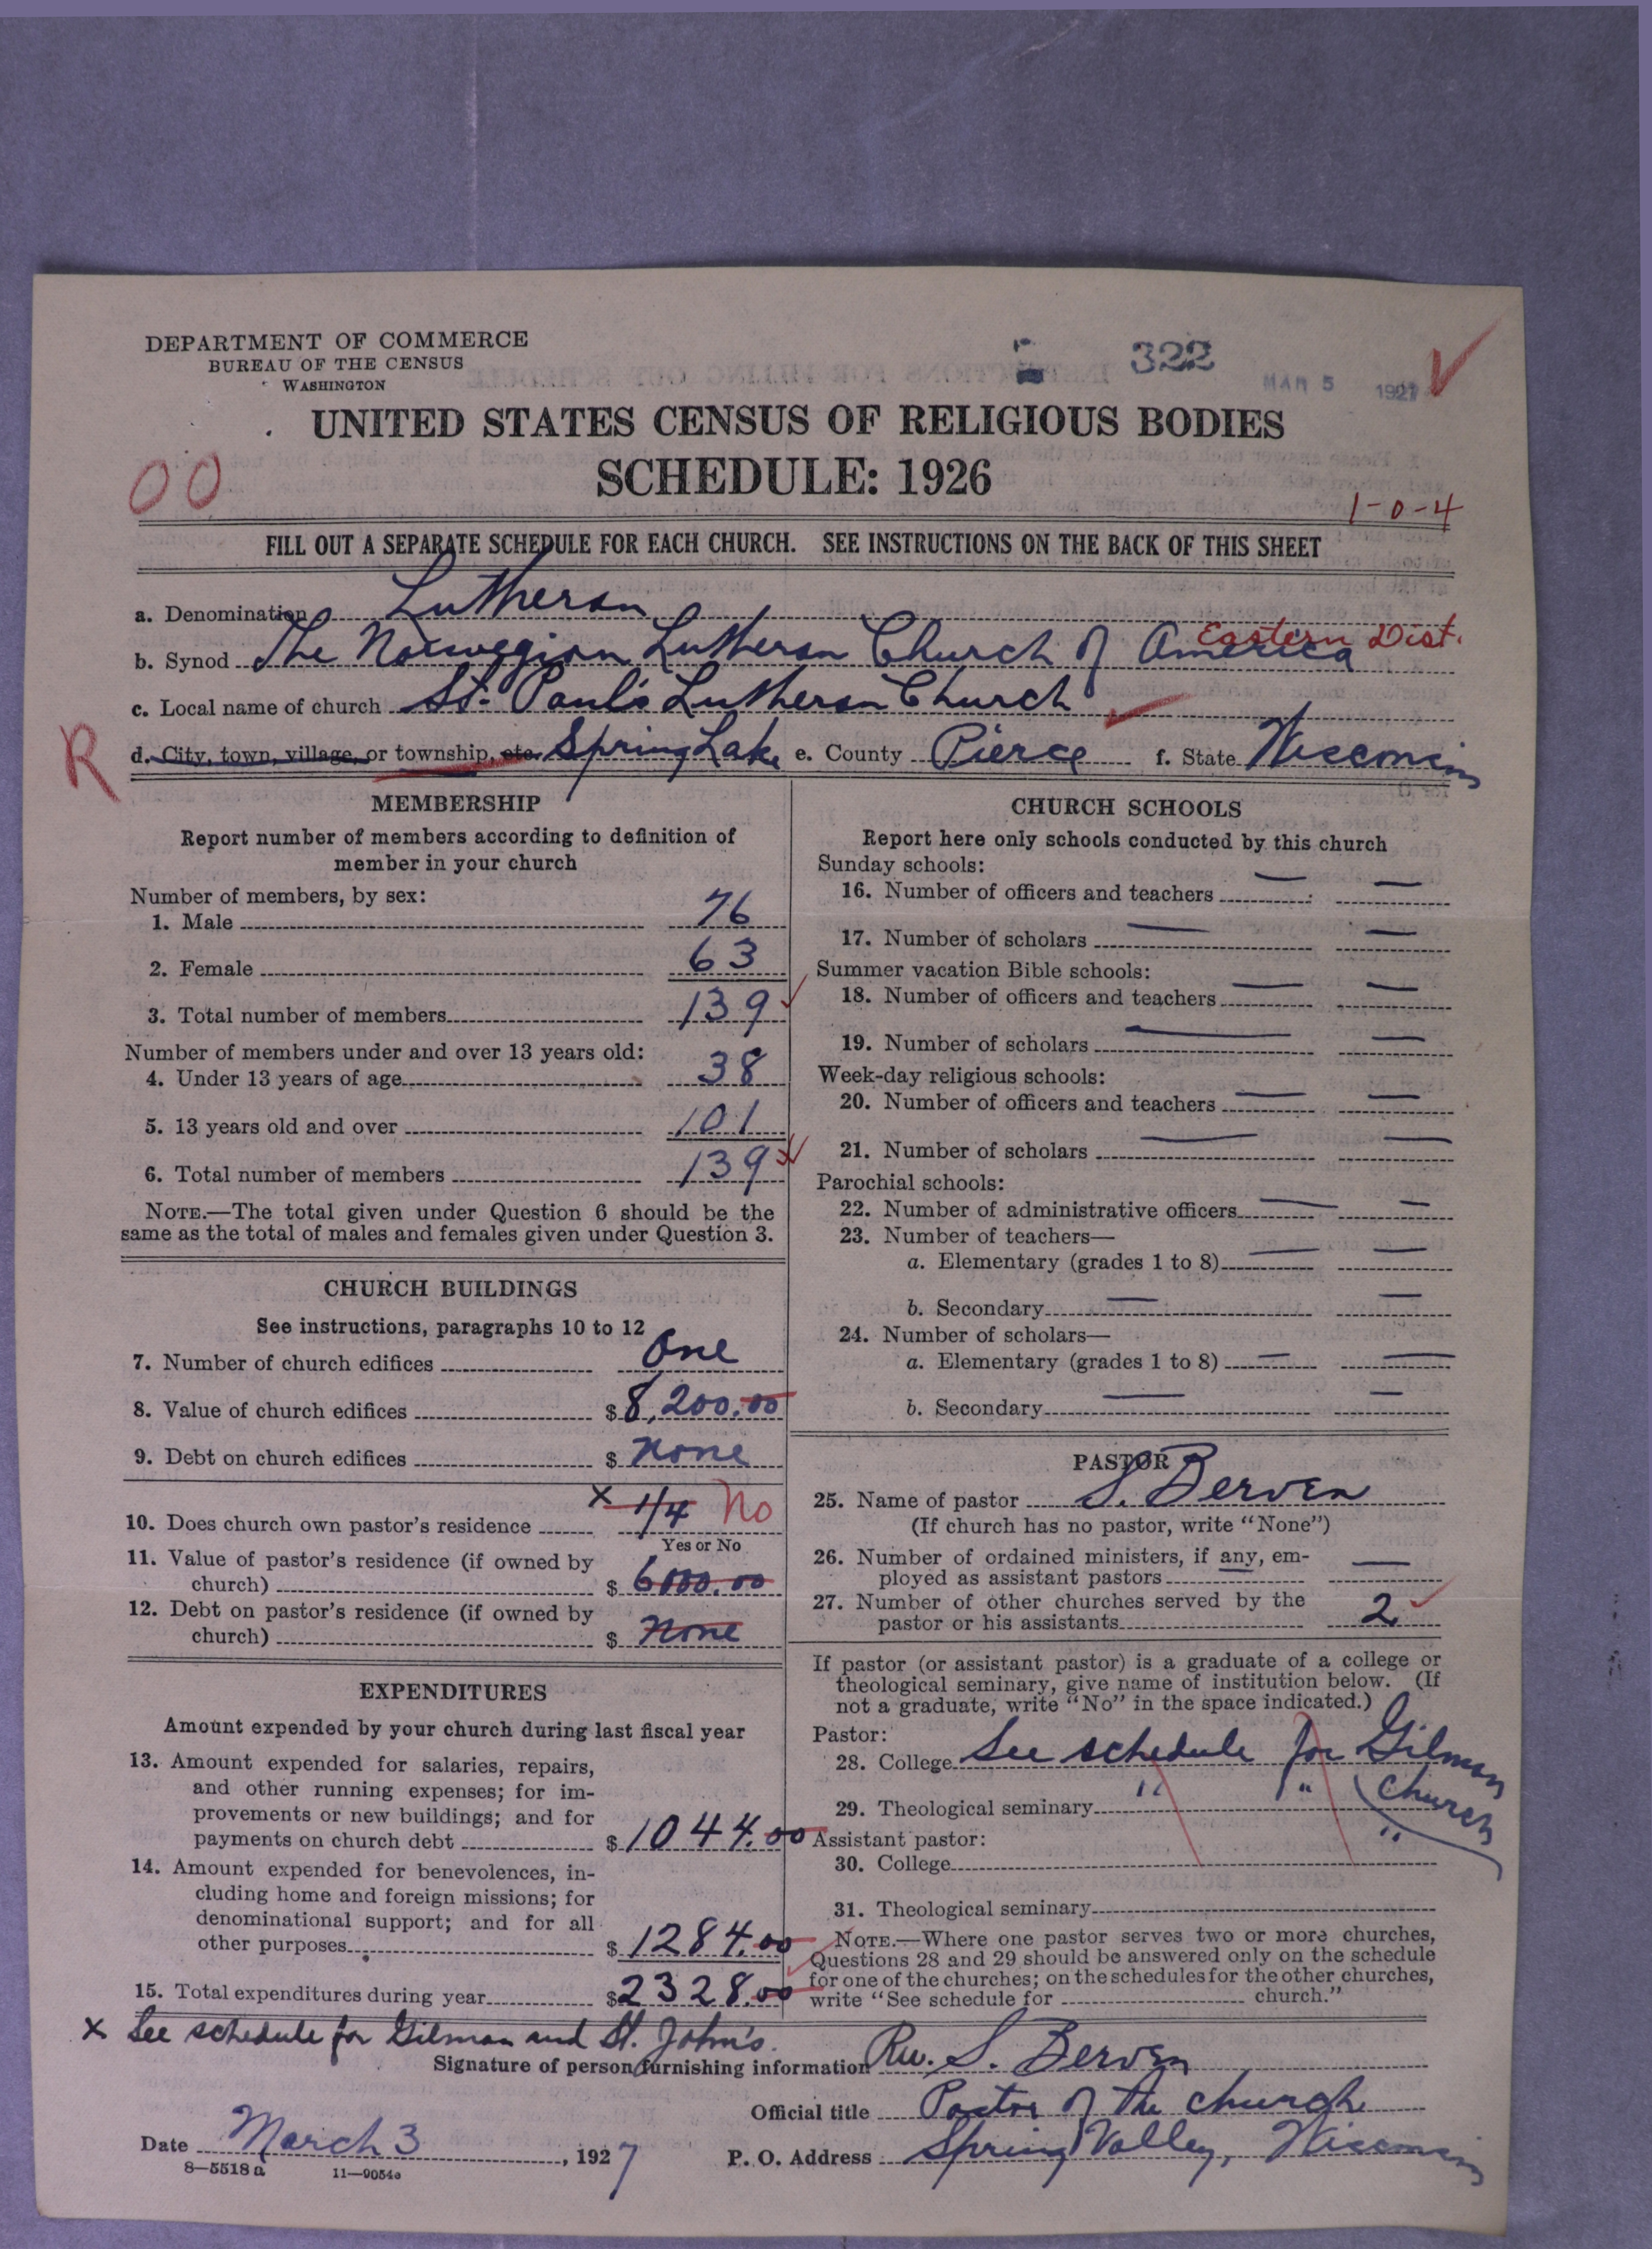 DEPARTMENT OF COMMERCE
BUREAU OF THE CENSUS
WASHINGTON
322
MAR 5 1927
UNITED STATES CENSUS OF RELIGIOUS BODIES
SCHEDULE: 1926
00
1-0-4
FILL OUT A SEPARATE SCHEDULE FOR EACH CHURCH. SEE INSTRUCTIONS ON THE BACK OF THIS SHEET
a. Denomination Lutheran
b. Synod The Norwegian Lutheran Church of America Eastern Dist.
c. Local name of church St. Paul's Lutheran Church
R
d. City, town, village, or township, etc. Spring Lake e. County Pierce f. State Wisconsin
MEMBERSHIP
Report number of members according to definition of
member in your church
Number of members, by sex:
1. Male 76
2. Female 63
3. Total number of members 139
Number of members under and over 13 years old:
4. Under 13 years of age 38
5. 13 years old and over 101
6. Total number of members 139
NOTE.—The total given under Question 6 should be the
same as the total of males and females given under Question 3.
CHURCH BUILDINGS
See instructions, paragraphs 10 to 12
7. Number of church edifices One
8. Value of church edifices $ 8,200.00
9. Debt on church edifices $ None
10. Does church own pastor's residence x 1/4 No
Yes or No
11. Value of pastor's residence (if owned by
church) $ 6000.00
12. Debt on pastor's residence (if owned by
church) $ None
EXPENDITURES
Amount expended by your church during last fiscal year
13. Amount expended for salaries, repairs,
and other running expenses; for im-
provements or new buildings; and for
payments on church debt $ 1044.00
14. Amount expended for benevolences, in-
cluding home and foreign missions; for
denominational support; and for all
other purposes $ 1284.00
15. Total expenditures during year $ 2328.00
CHURCH SCHOOLS
Report here only schools conducted by this church
Sunday schools:
16. Number of officers and teachers — —
17. Number of scholars — —
Summer vacation Bible schools:
18. Number of officers and teachers — —
19. Number of scholars — —
Week-day religious schools:
20. Number of officers and teachers — —
21. Number of scholars — —
Parochial schools:
22. Number of administrative officers — —
23. Number of teachers—
a. Elementary (grades 1 to 8) — —
b. Secondary — —
24. Number of scholars—
a. Elementary (grades 1 to 8) — —
b. Secondary — —
PASTOR
25. Name of pastor S. Berven
(If church has no pastor, write "None")
26. Number of ordained ministers, if any, em-
ployed as assistant pastors —
27. Number of other churches served by the
pastor or his assistants 2
If pastor (or assistant pastor) is a graduate of a college or
theological seminary, give name of institution below. (If
not a graduate, write "No" in the space indicated.)
Pastor:
28. College See schedule for Gilman
church
29. Theological seminary " " "
Assistant pastor:
30. College
31. Theological seminary
NOTE.—Where one pastor serves two or more churches,
Questions 28 and 29 should be answered only on the schedule
for one of the churches; on the schedules for the other churches,
write "See schedule for church."
x See schedule for Gilman and St. John's.
Signature of person furnishing information Rev. S. Berven
Official title Pastor of the church
Date March 3, 1927 P. O. Address Spring Valley, Wisconsin
8—5518 a 11—9054a